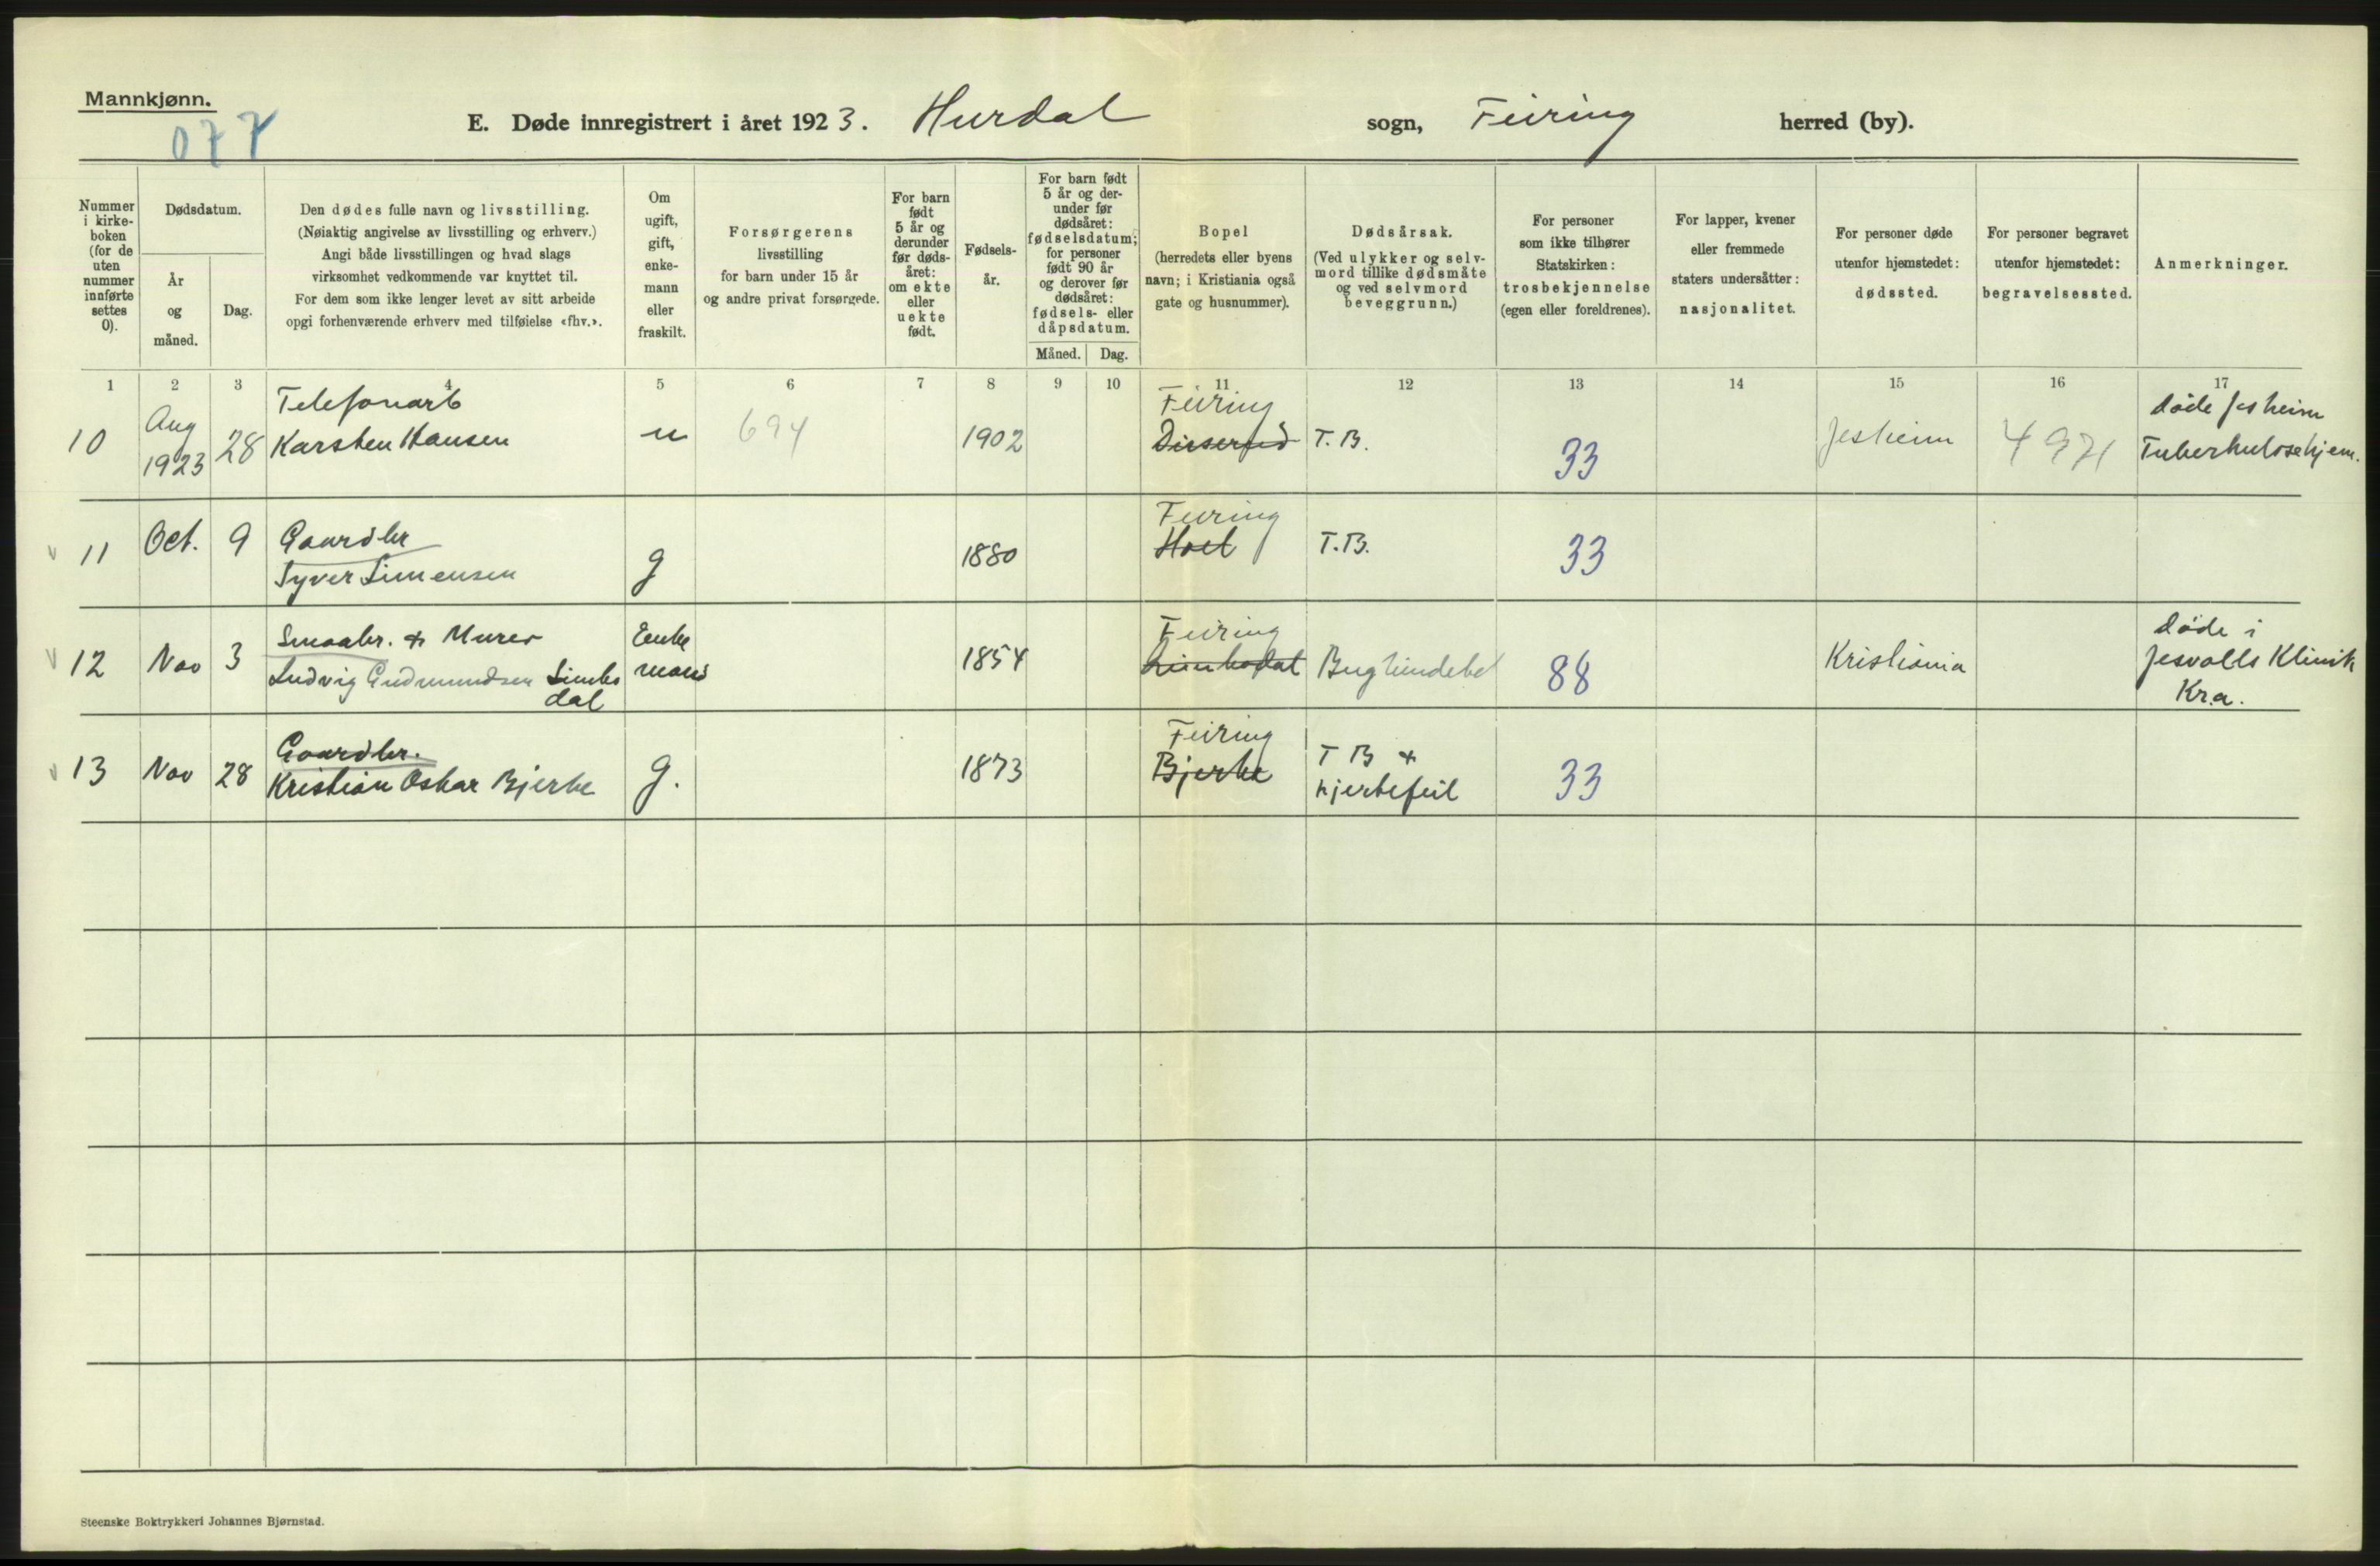 Mannkjønn.
077
E. Døde innregistrert i året 1923. Hurdal sogn, Feiring herred (by).
Nummer i kirke- boken (for de uten nummer innførte settes 0).
Dødsdatum.
År og måned.
Dag.
Den dødes fulle navn og livsstilling.
(Nøiaktig angivelse av livsstilling og erhverv.)
Angi både livsstillingen og hvad slags
virksomhet vedkommende var knyttet til.
For dem som ikke lenger levet av sitt arbeide
opgi forhenværende erhverv med tilføielse «fhv.».
Om ugift, gift, enke- mann eller fraskilt.
Forsørgerens
livsstilling
for barn under 15 år
og andre privat forsørgede.
For barn født 5 år og derunder før døds- året: om ekte eller uekte født.
Fødsels- år.
For barn født 5 år og der- under før dødsåret: fødselsdatum; for personer født 90 år og derover før dødsåret: fødsels- eller dåpsdatum.
Måned. Dag.
Bopel
(herredets eller byens
navn; i Kristiania også
gate og husnummer).
Dødsårsak.
(Ved ulykker og selv-
mord tillike dødsmåte
og ved selvmord
beveggrunn.)
For personer
som ikke tilhører
Statskirken:
trosbekjennelse
(egen eller foreldrenes).
For lapper, kvener
eller fremmede
staters undersåtter:
nasjonalitet.
For personer døde
utenfor hjemstedet:
dødssted.
For personer begravet
utenfor hjemstedet:
begravelsessted.
Anmerkninger.
1 2 3 4 5 6 7 8 9 10 11 12 13 14 15 16 17
Telefonarb Feiring døde Jesheim
10 Aug 1923 28 Karsten Hansen u 694 1902 T.B. 33 Jesheim 4971 Tuberkulosehjem.
Gaardbr Feiring
11 Oct. 9 Syver Simensen g 1880 Hoel T.B. 33
Smaabr. & Murer Enke Feiring døde i
12 Nov 3 Ludvig Gudmundsen Limbo mand 1854 88 Kristiania Jesvolls Klinik
dal Kra.
Gaardbr. Feiring T B &
13 Nov 28 Kristian Oskar Bjerke g. 1873 Bjerke hjertefeil 33
Steenske Boktrykkeri Johannes Bjørnstad.